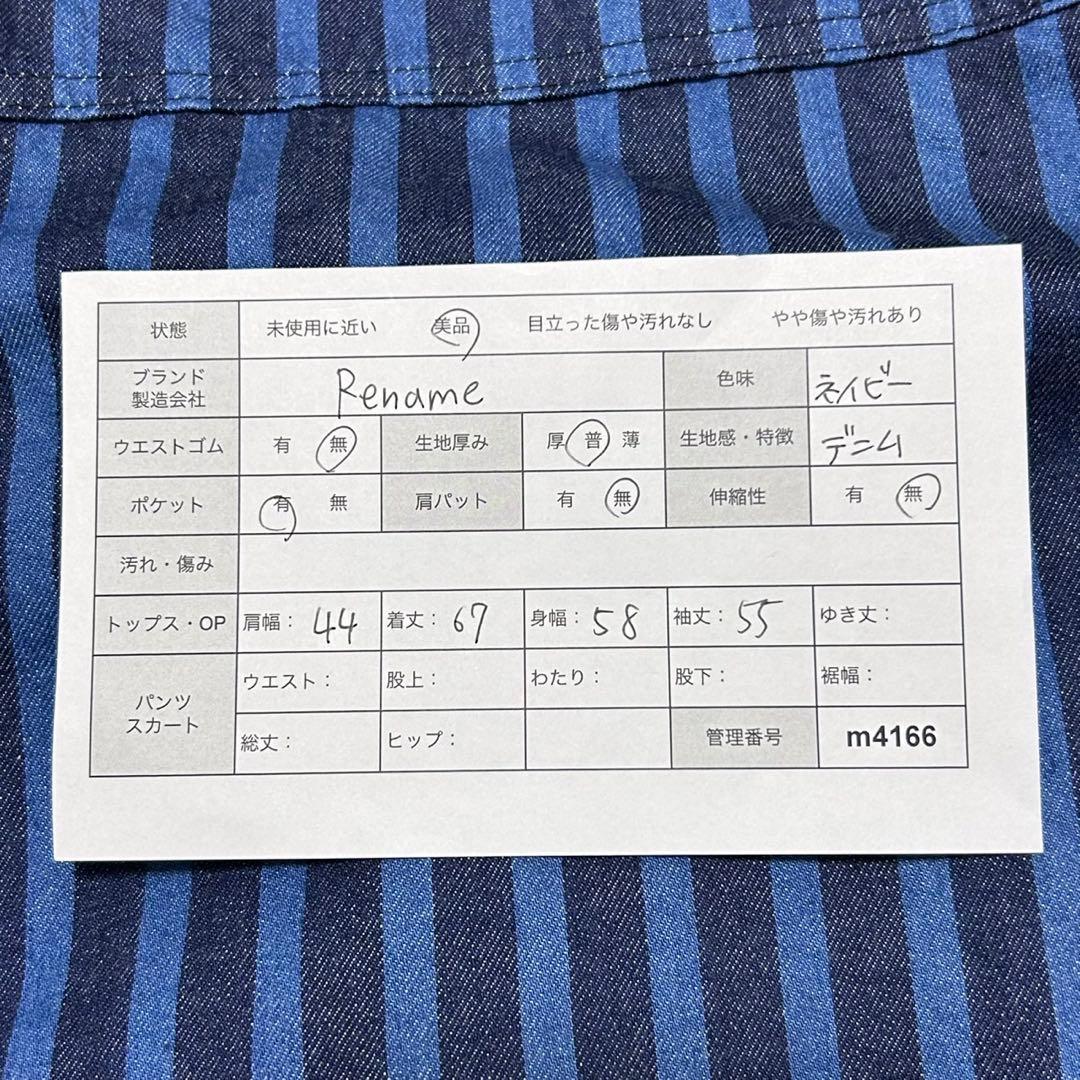 状態 未使用に近い 美品 目立った傷や汚れなし やや傷や汚れあり
ブランド
製造会社 Rename 色味 ネイビー
ウエストゴム 有 無 生地厚み 厚 普 薄 生地感・特徴 デニム
ポケット 有 無 肩パット 有 無 伸縮性 有 無
汚れ・傷み
トップス・OP 肩幅： 44 着丈： 67 身幅： 58 袖丈： 55 ゆき丈：
パンツ
スカート ウエスト： 股上： わたり： 股下： 裾幅：
総丈： ヒップ： 管理番号 m4166